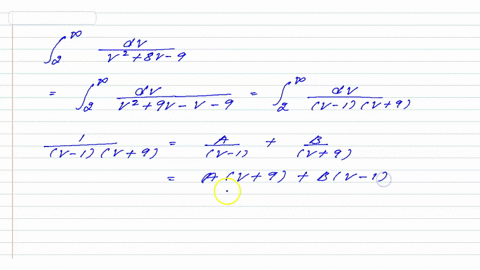 ∫₂^∞ dv/(v²+8v-9)
= ∫₂^∞ dv/(v²+9v-v-9) = ∫₂^∞ dv/((v-1)(v+9))
1/((v-1)(v+9)) = A/(v-1) + B/(v+9)
= A(v+9) + B(v-1)